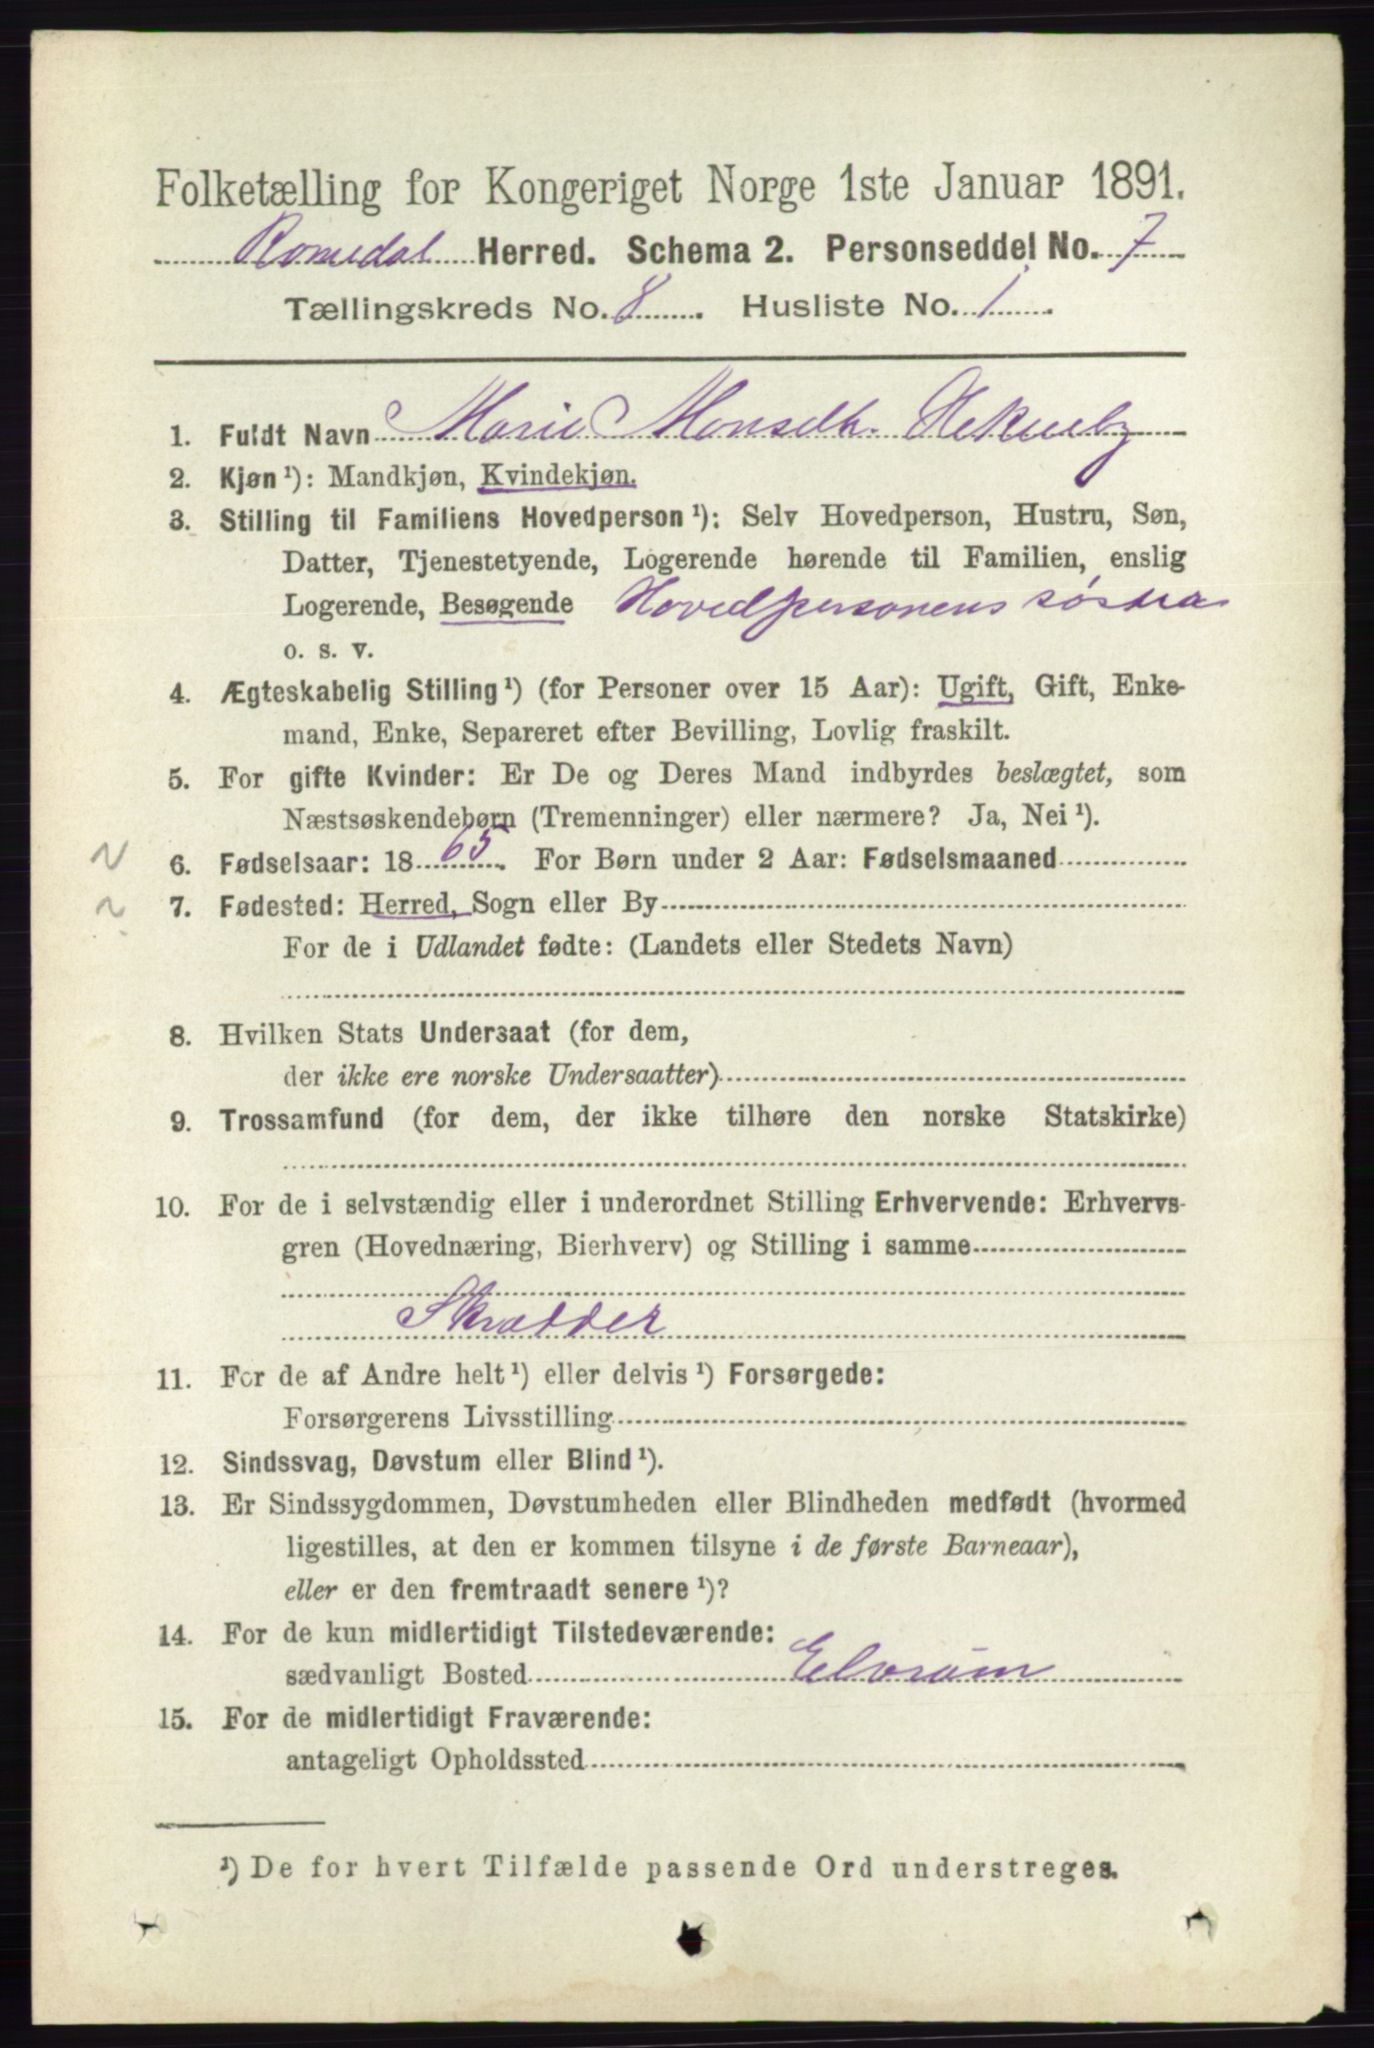 Folketælling for Kongeriget Norge 1ste Januar 1891.
Romedal Herred. Schema 2. Personseddel No. 7
Tællingskreds No. 8. Husliste No. 1.
1. Fuldt Navn Marie
2. Kjøn ¹): Mandkjøn, Kvindekjøn.
3. Stilling til Familiens Hovedperson ¹): Selv Hovedperson, Hustru, Søn,
Datter, Tjenestetyende, Logerende hørende til Familien, enslig
Logerende, Besøgende Hovedpersonens
o. s. v.
4. Ægteskabelig Stilling ¹) (for Personer over 15 Aar): Ugift, Gift, Enke-
mand, Enke, Separeret efter Bevilling, Lovlig fraskilt.
5. For gifte Kvinder: Er De og Deres Mand indbyrdes beslægtet, som
Næstsøskendebørn (Tremenninger) eller nærmere? Ja, Nei ¹).
6. Fødselsaar: 1865. For Børn under 2 Aar: Fødselsmaaned
7. Fødested: Herred, Sogn eller By
For de i Udlandet fødte: (Landets eller Stedets Navn)
8. Hvilken Stats Undersaat (for dem,
der ikke ere norske Undersaatter)
9. Trossamfund (for dem, der ikke tilhøre den norske Statskirke)
10. For de i selvstændig eller i underordnet Stilling Erhvervende: Erhvervs-
gren (Hovednæring, Bierhverv) og Stilling i samme
Skrædder
11. For de af Andre helt ¹) eller delvis ¹) Forsørgede:
Forsørgerens Livsstilling
12. Sindssvag, Døvstum eller Blind ¹).
13. Er Sindssygdommen, Døvstumheden eller Blindheden medfødt (hvormed
ligestilles, at den er kommen tilsyne i de første Barneaar),
eller er den fremtraadt senere ¹)?
14. For de kun midlertidigt Tilstedeværende:
sædvanligt Bosted Elverum
15. For de midlertidigt Fraværende:
antageligt Opholdssted
¹) De for hvert Tilfælde passende Ord understreges.